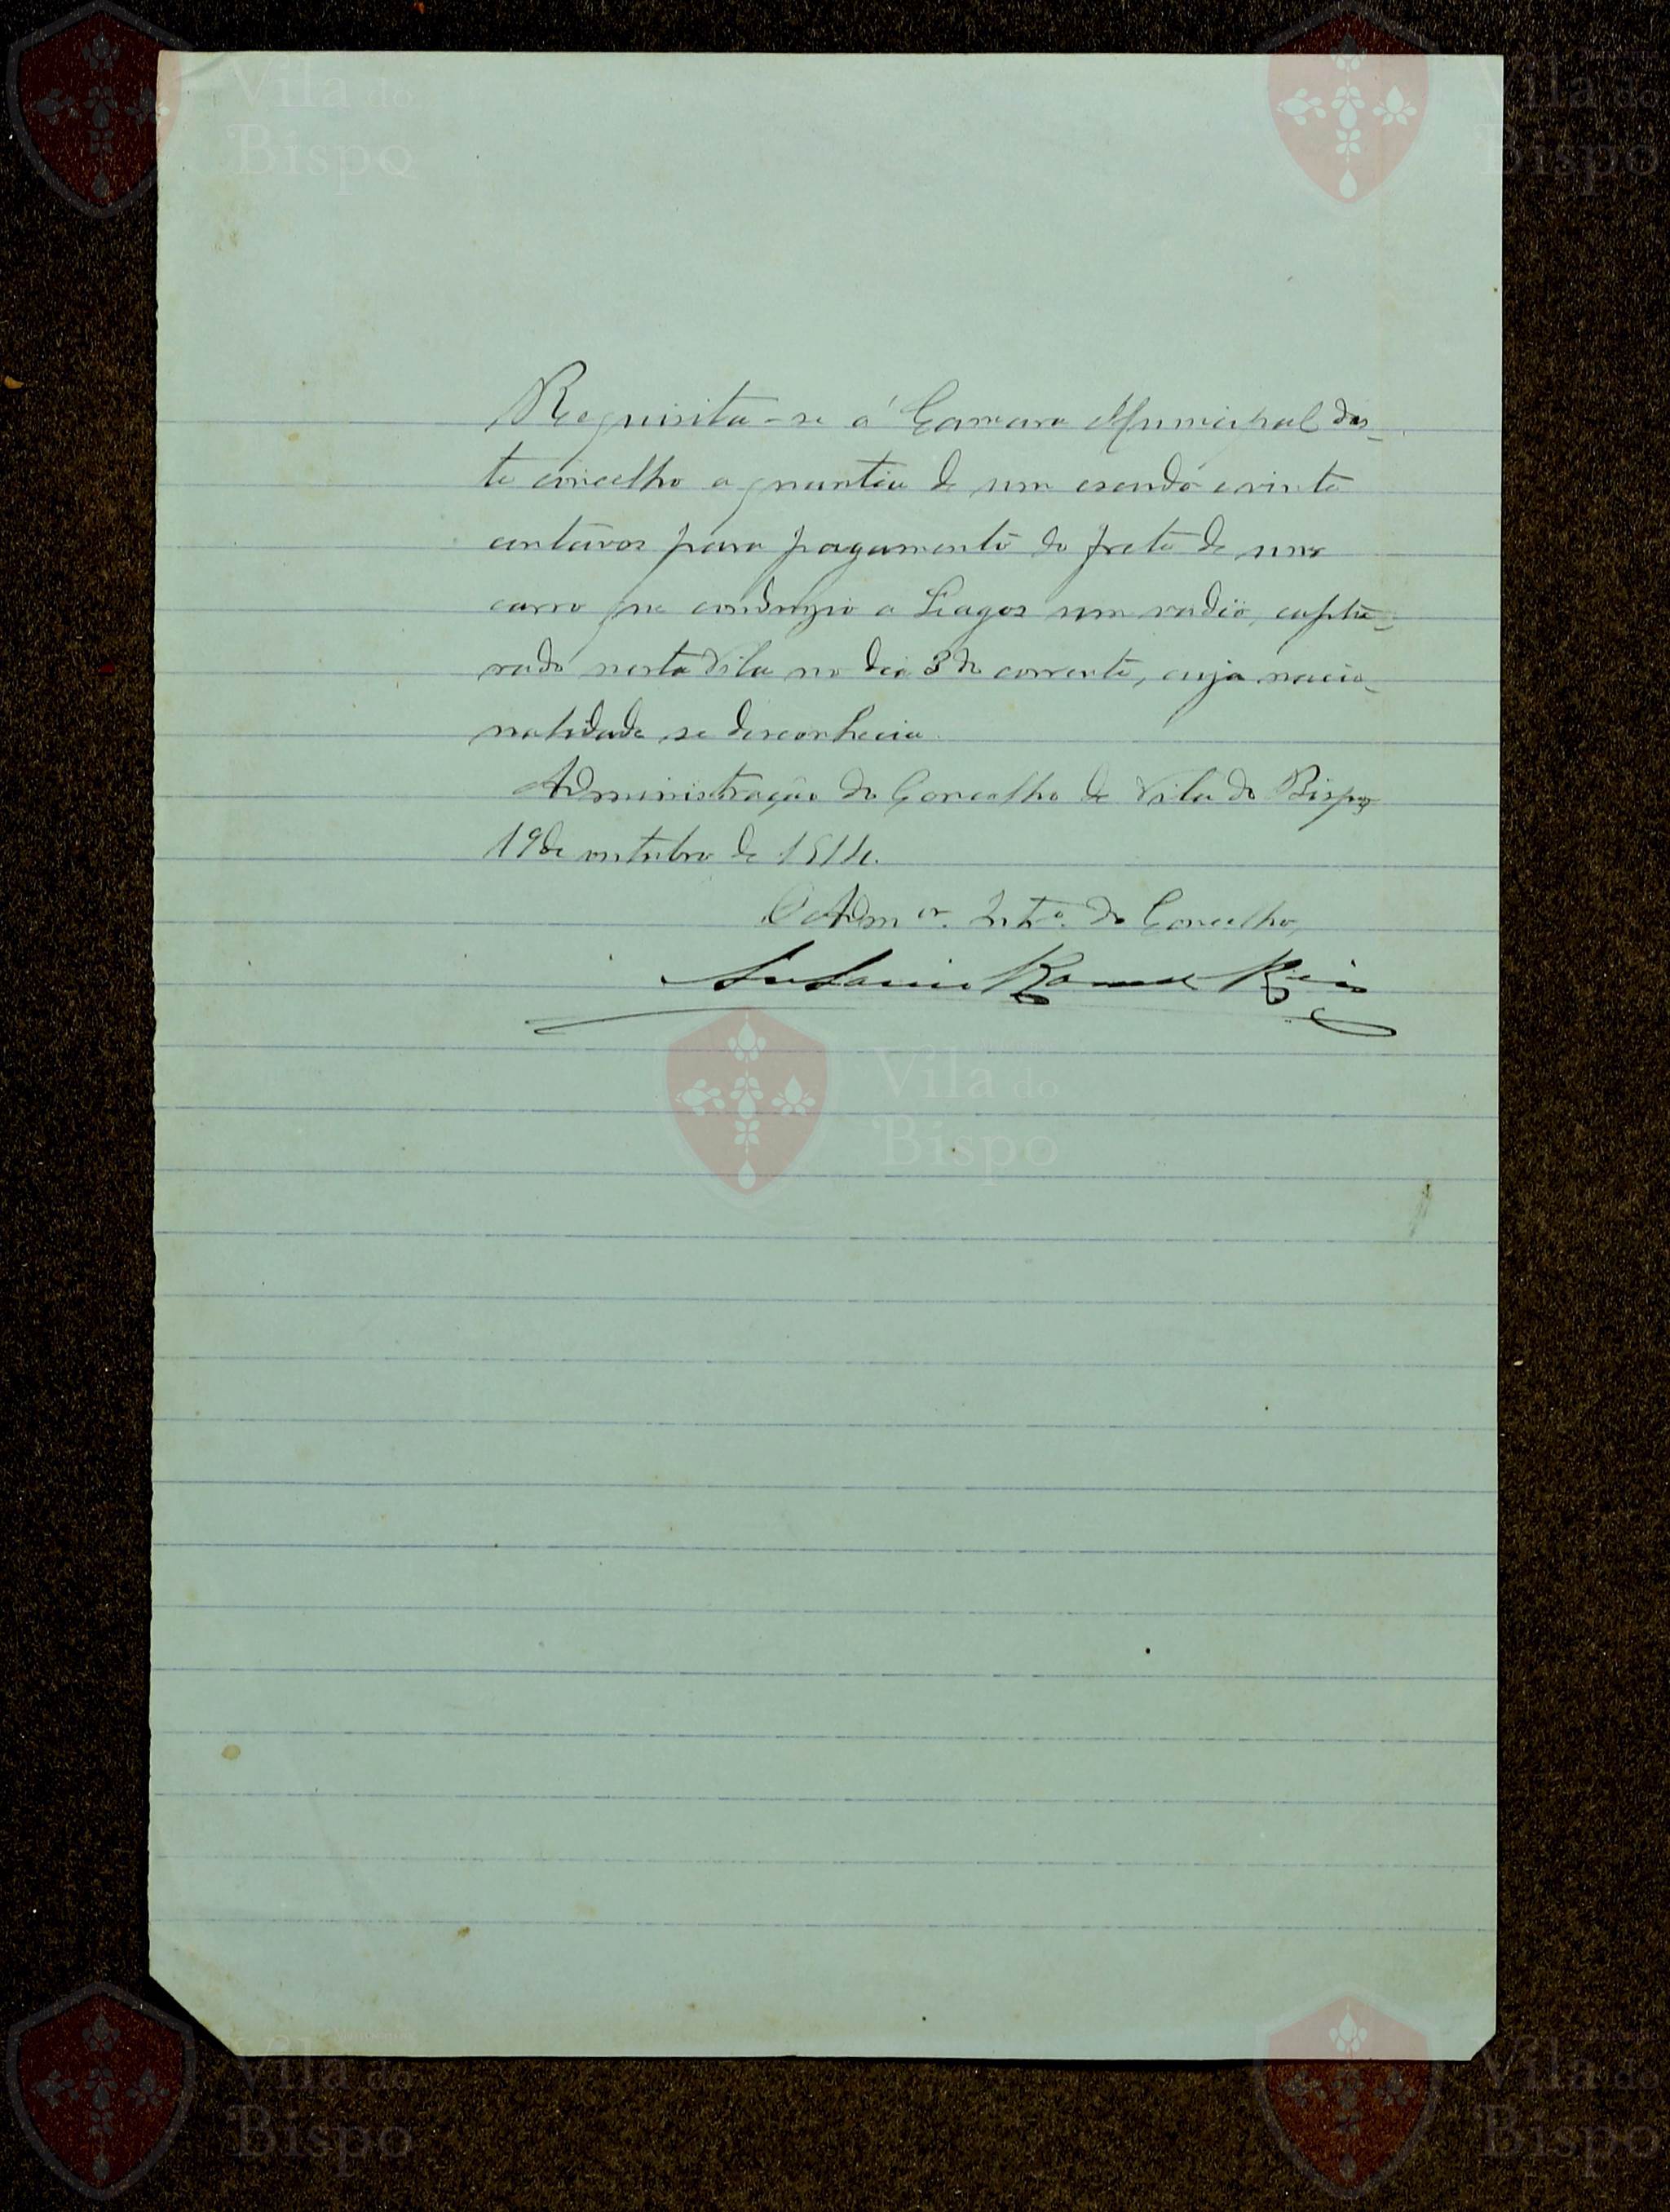 Vila do
Bispo
Vila do
Bispo
Requisita-se á Camara Municipal des-
te concelho a quantia de um escudo e vinte
centavos para pagamento do frete de um
carro que conduzio a Lagos um vadio, captu-
rado nesta Vila no dia 3 do corrente, cuja nacio-
nalidade se desconhecia.
Administração do Concelho de Vila do Bispo,
19 de outubro de 1914.
O Adm.or Int.o do Concelho,
Antonio Reis
Vila do
Bispo
Vila do
Bispo
Vila do
Bispo